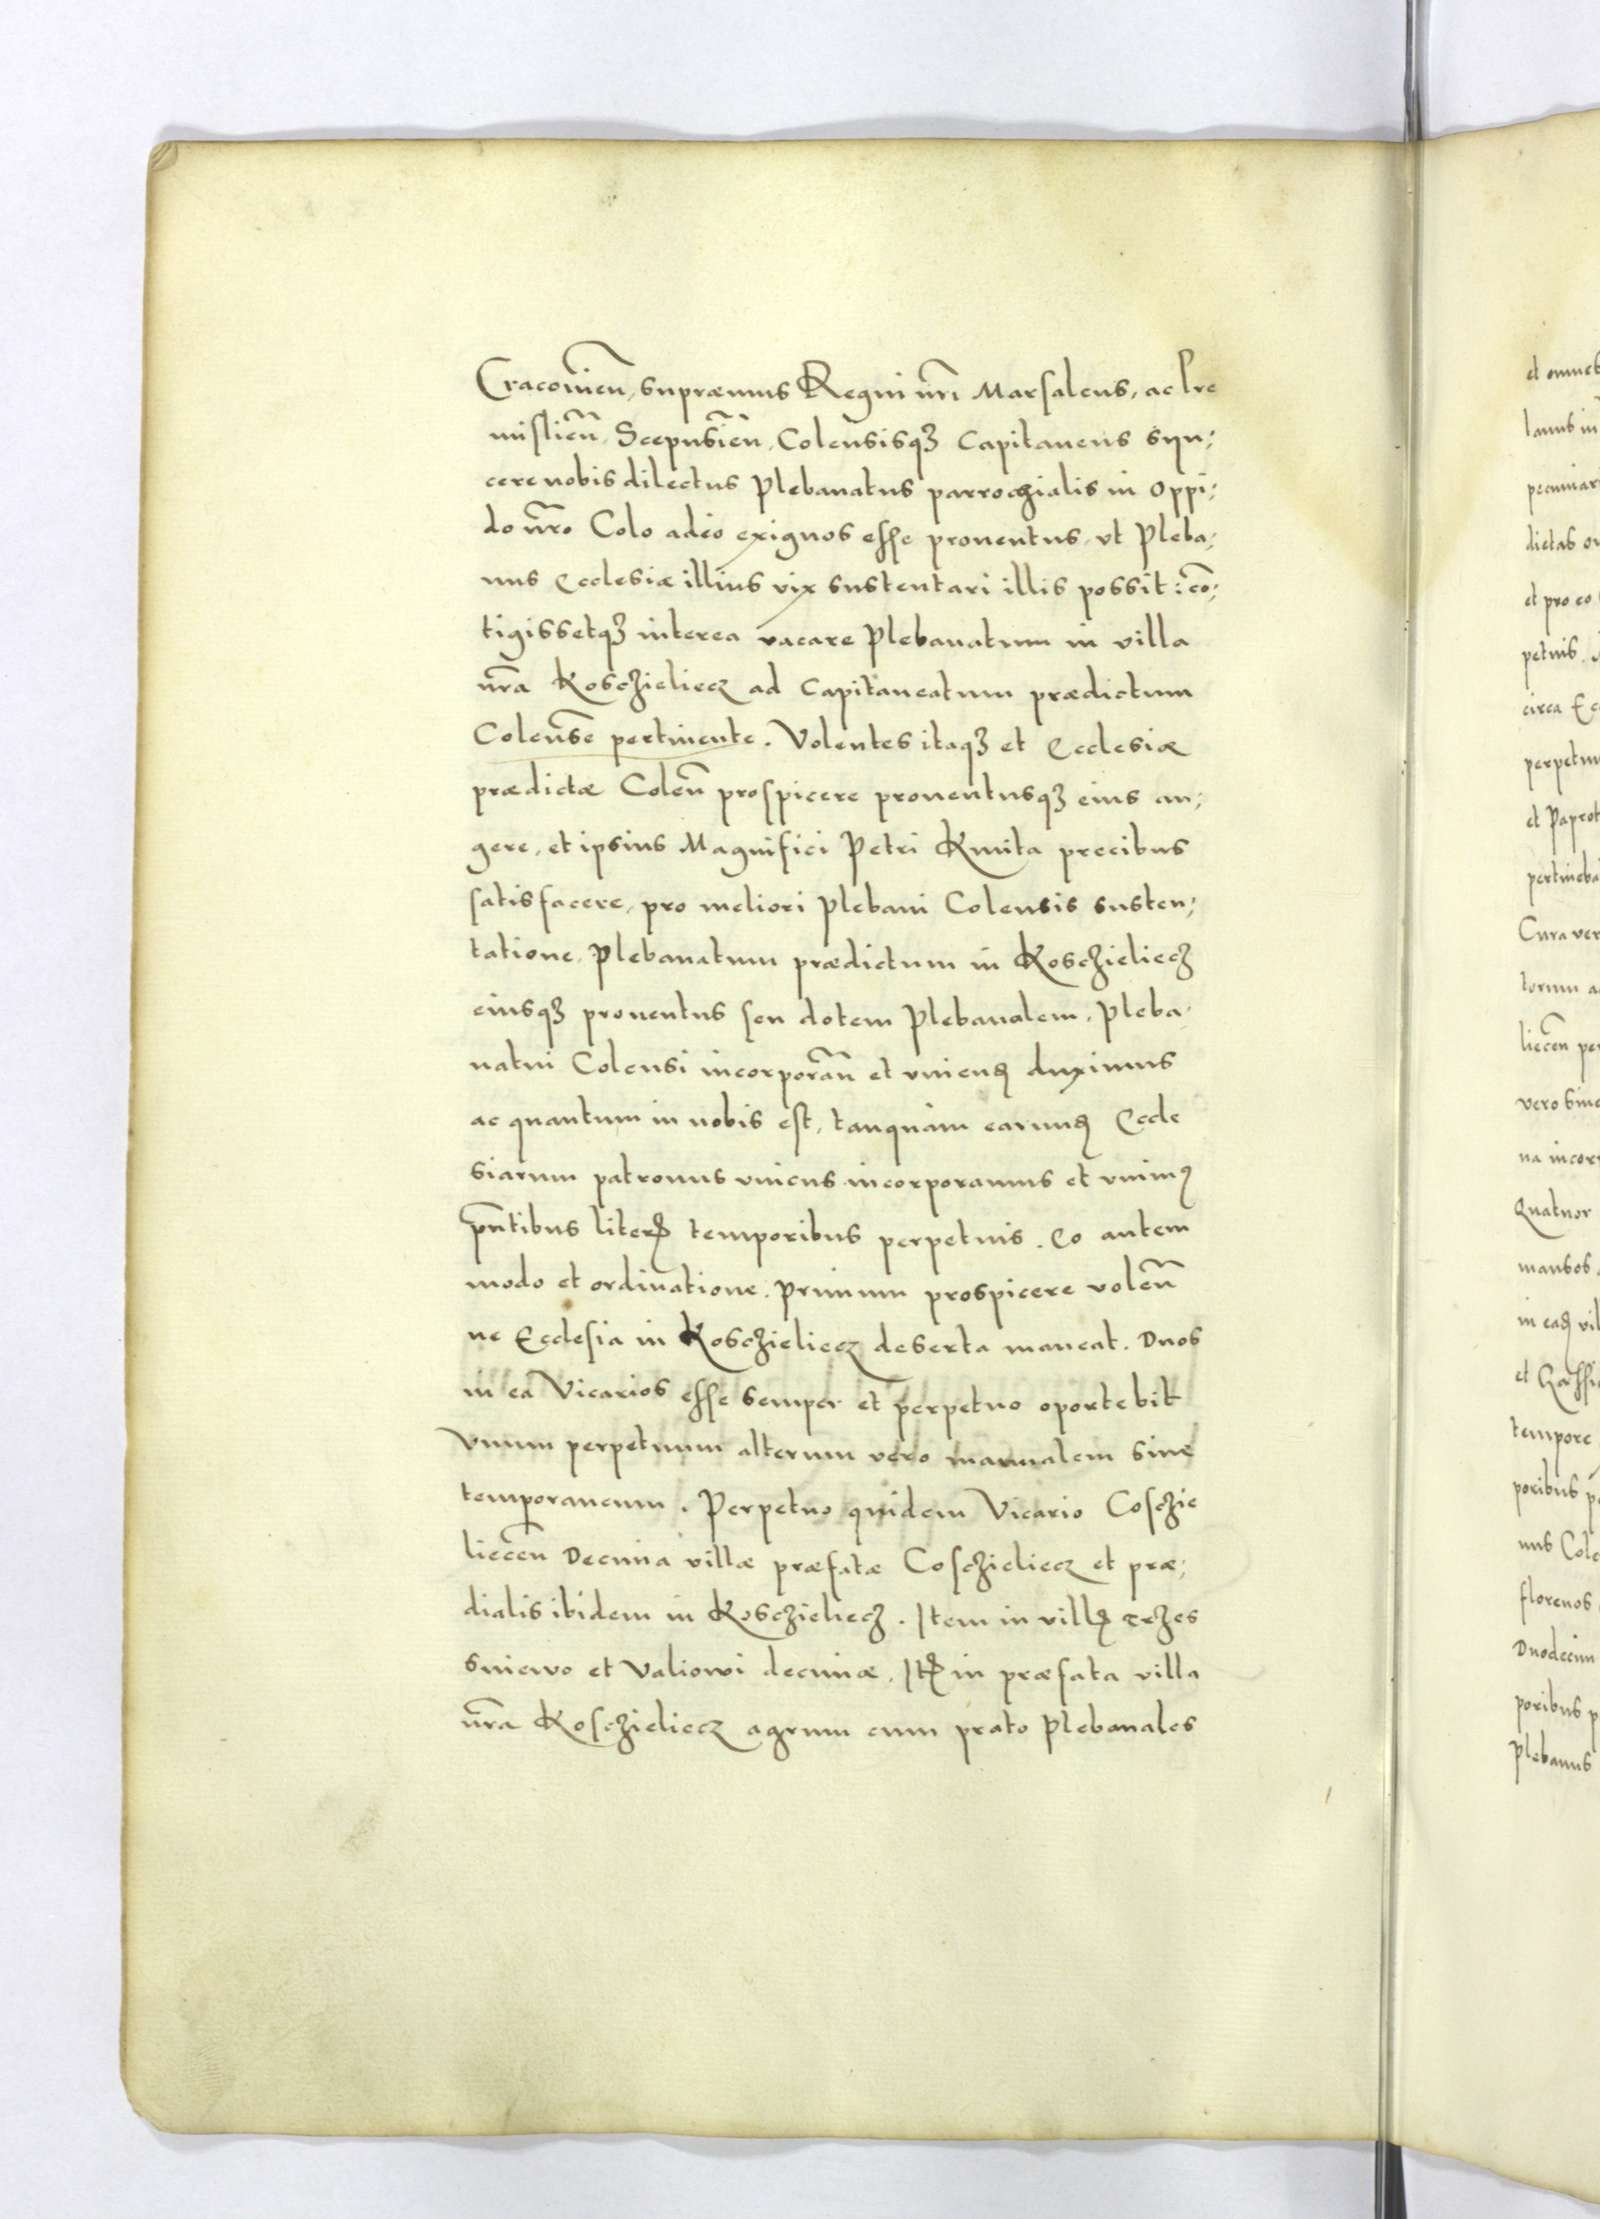 Cracovien̄, supræmus Regni nr̄i Marsalcus, ac Pre
mislien̄, Scepusien̄, Colensisqʒ Capitaneus syn;
cere nobis dilectus Plebanatus parrochialis in Oppi;
do nr̄o Colo adeo exiguos esse prouentus, vt Pleba;
nus Ecclesiæ illius vix sustentari illis possit: cō;
tigissetqʒ interea vacare Plebanatum in villa
nr̄a Koschieliecz ad Capitaneatum prædictum
Colensē pertinente. Volentes itaqʒ et Ecclesiæ
prædictæ Colen̄ prospicere prouentusqʒ eius au;
gere, et ipsius Magnifici Petri Kmita precibus
satisfacere, pro meliori Plebani Colensis susten;
tatione, Plebanatum prædictum in Koschieliecz
eiusqʒ prouentus seu dotem Plebanalem, Pleba;
natui Colensi incorporan̄ et vniend duximus
ac quantum in nobis est, tanquam earund Eccle
siarum patronus vnicus incorporamus et vnimꝰ
pn̄tibus liter temporibus perpetuis. Eo autem
modo et ordinatione. Primum prospicere volen̄
ne Ecclesia in Koschieliecz deserta maneat. Duos
in ea Vicarios esse semper et perpetuo oportebit
Vnum perpetuum alterum vero manualem siue
temporaneum. Perpetuo quidem Vicario Coschie
liecen̄ Decima villæ præfatæ Coschieliecz et præ;
dialis ibidem in Koschieliecz. Item in vill Trzes
sniewo et Valiowi decimæ. It in præfata villa
nr̄a Koschieliecz agrum cum prato Plebanales
et
lanus in
pecuniar
dictas
et pro eo
petuis.
circa
perpetu
et Paprot
pertineba
Cura ver
torum a
liecen̄ per
vero
na incor
Quatuor
mansos
in ead vil
et
tempore
poribus
nus Cole
florenos
Duodecim
poribus p
Plebanus